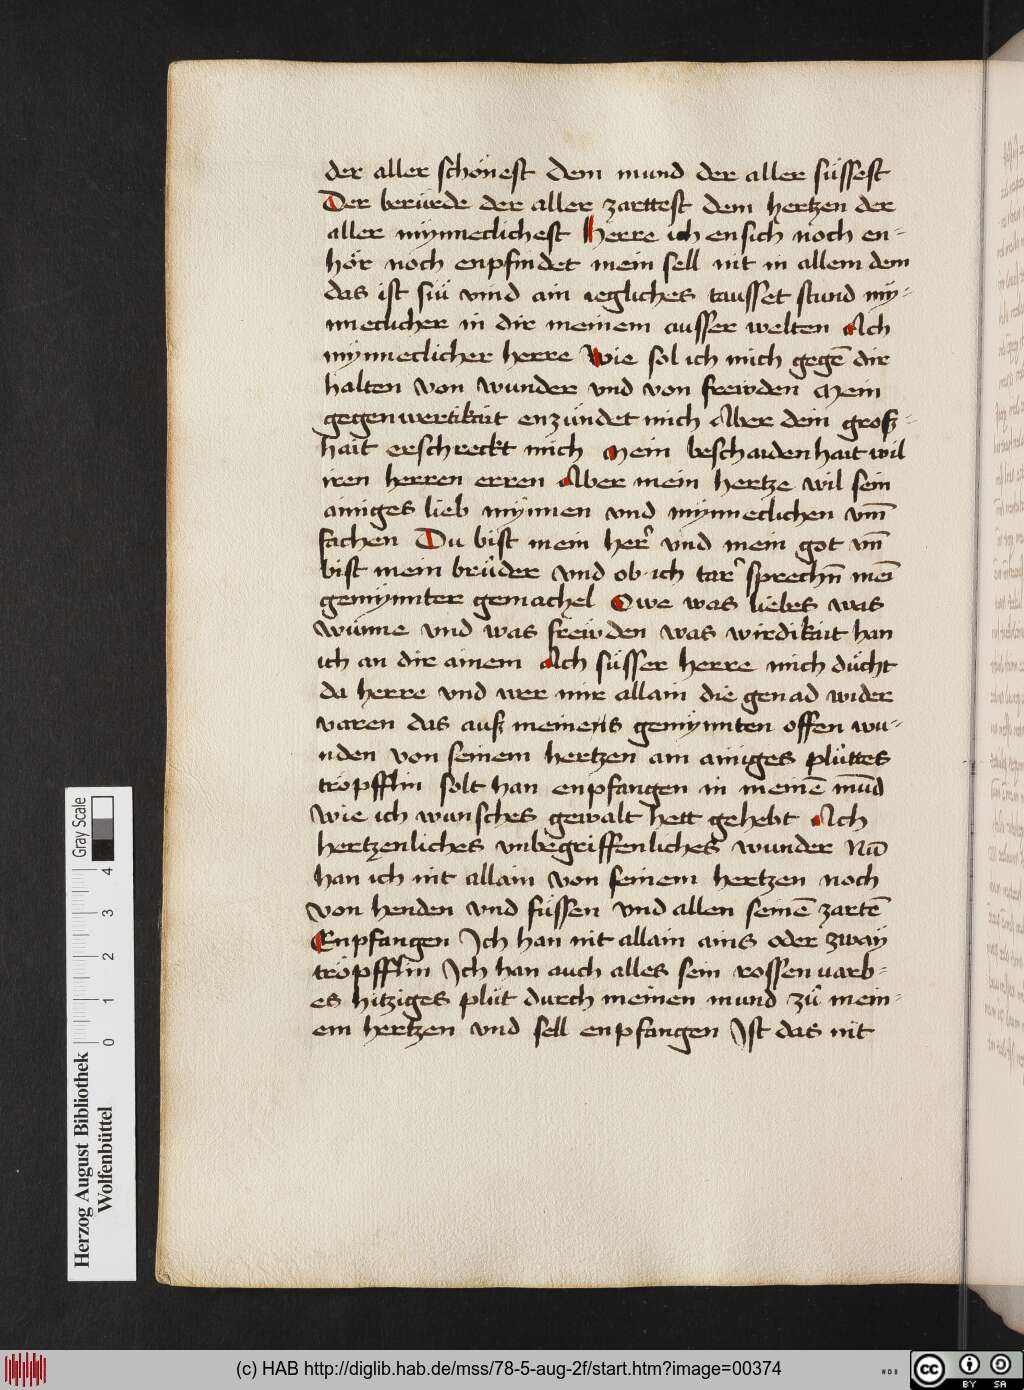 der aller schönest dem mund der aller süssest
Der berürde der aller zarttest dem hertzen der
aller mynneclichest Herre ich ensich noch en-
hör noch enpfindet mein sell nit in allem dem
das ist sui vnnd ain iegliches tausset stund my-
nneclicher in dir meinem ausser welten Ach
mynneclicher herre Wie sol ich mich gegē dir
halten von wunder vnd von frewden Mein
gegenwertikait enzündet mich Aber dein groß-
hait erschreckt mich Mein beschaidenhait wil
iren herren erren Aber mein hertze wil sein
ainiges lieb mynnen vnd mynneclichen vm̄
fachen Du bist mein her vnd mein got vn̄
bist mein brůder vnd ob ich tar sprechn̄ mei
gemynnter gemachel Owe was liebes was
wunne vnd was frewden was wirdikait han
ich an dir ainem Ach süsser herre mich důcht
da herre vnd wer mir allain die genad wider
varen das auß meinens gemynnten offen wu-
nden von seinem hertzen ain ainiges plůttes
tröpfflin solt han enpfangen in meinē mūd
Wie ich wunsches gewalt hett gehebt Ach
hertzenliches vnbegriffenliches wunder Nū
han ich nit allain von seinem hertzen noch
von henden vnd füssen vnd allen seinē zartē
Enpfangen Ich han nit allain ains oder zway
tröpfflin Ich han auch alles sein rossenuarb-
es hitziges plůt durch meinen mund zů mein-
em hertzen vnd sell enpfangen Ist das nit
Herzog August Bibliothek
Wolfenbüttel
0 1 2 3 4
Gray Scale
(c) HAB http://diglib.hab.de/mss/78-5-aug-2f/start.htm?image=00374
WDB
cc BY SA